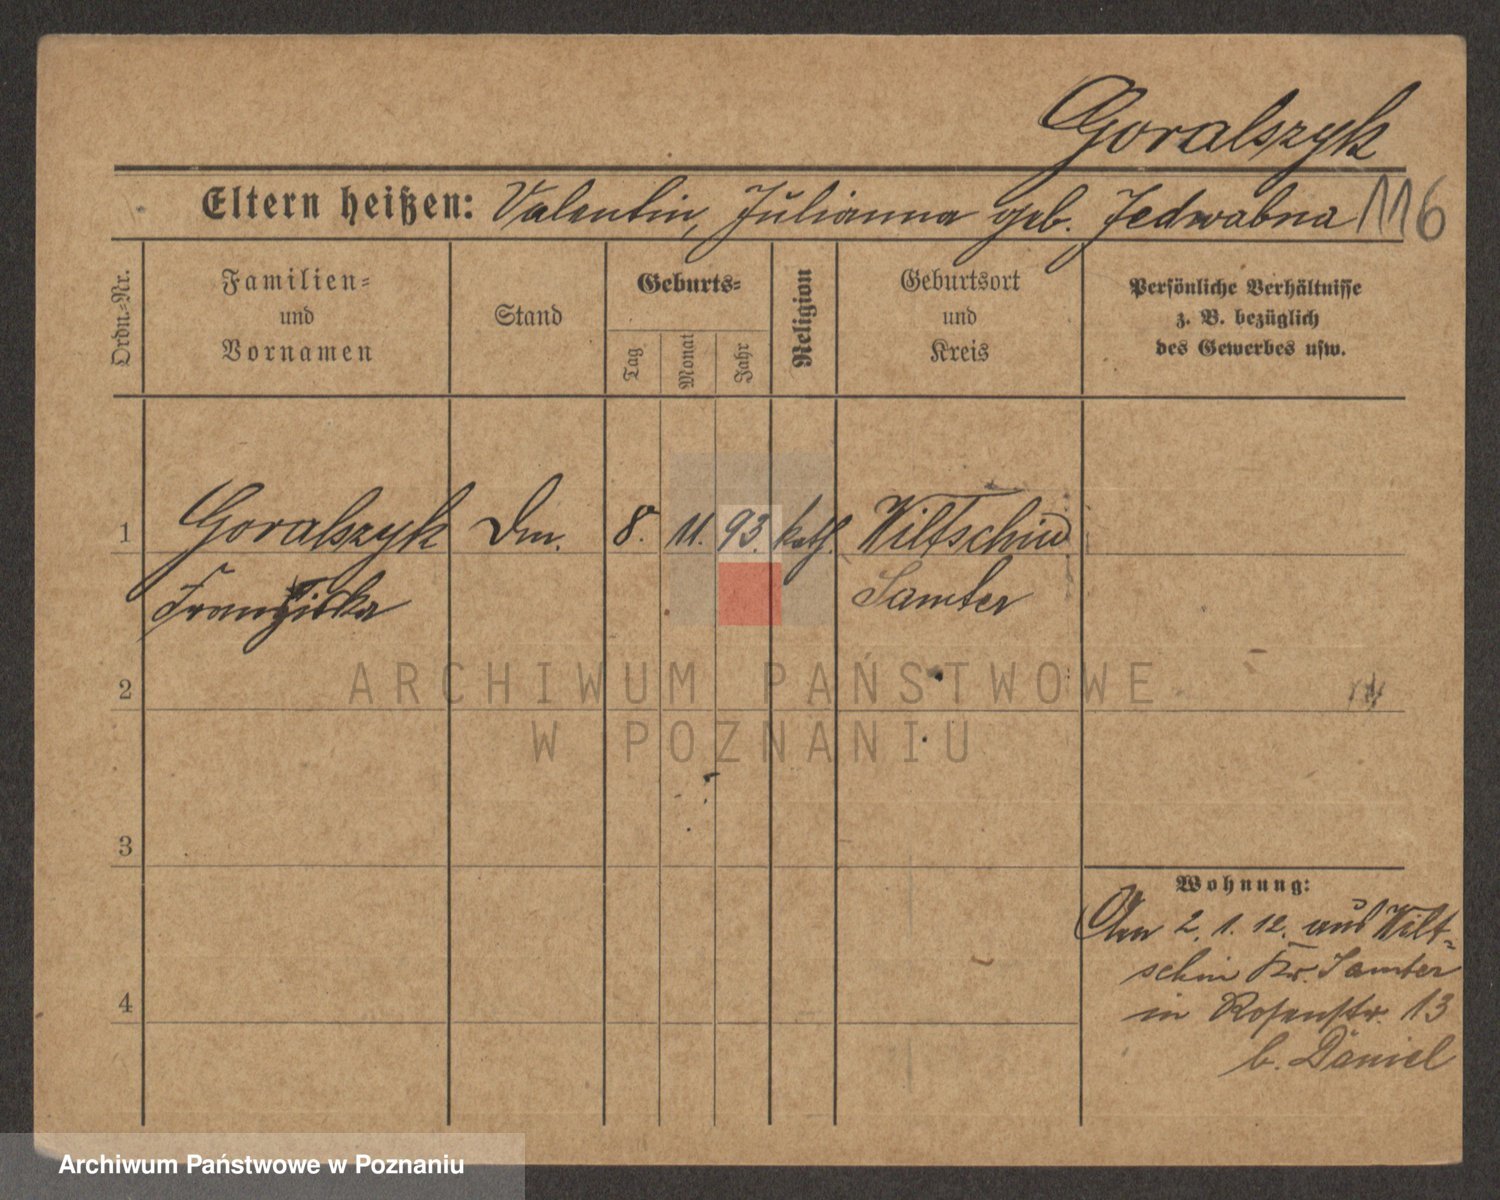 Goralszyk
Eltern heißen: Valentin, Julianna geb. Jedwabna 116
Ordn.-Nr.
Familien-
und
Vornamen
Stand
Geburts-
Tag
Monat
Jahr
Religion
Geburtsort
und
Kreis
Persönliche Verhältnisse
z. B. bezüglich
des Gewerbes usw.
1 Goralszyk Dm. 8. 11. 93. kath. Wiltschin
Franziska Samter
2
ARCHIWUM PAŃSTWOWE
W POZNANIU
3
Wohnung:
2. 1. 12. aus Wilt-
schin Kr. Samter
4
in Rosenstr. 13
b. Daniel
Archiwum Państwowe w Poznaniu